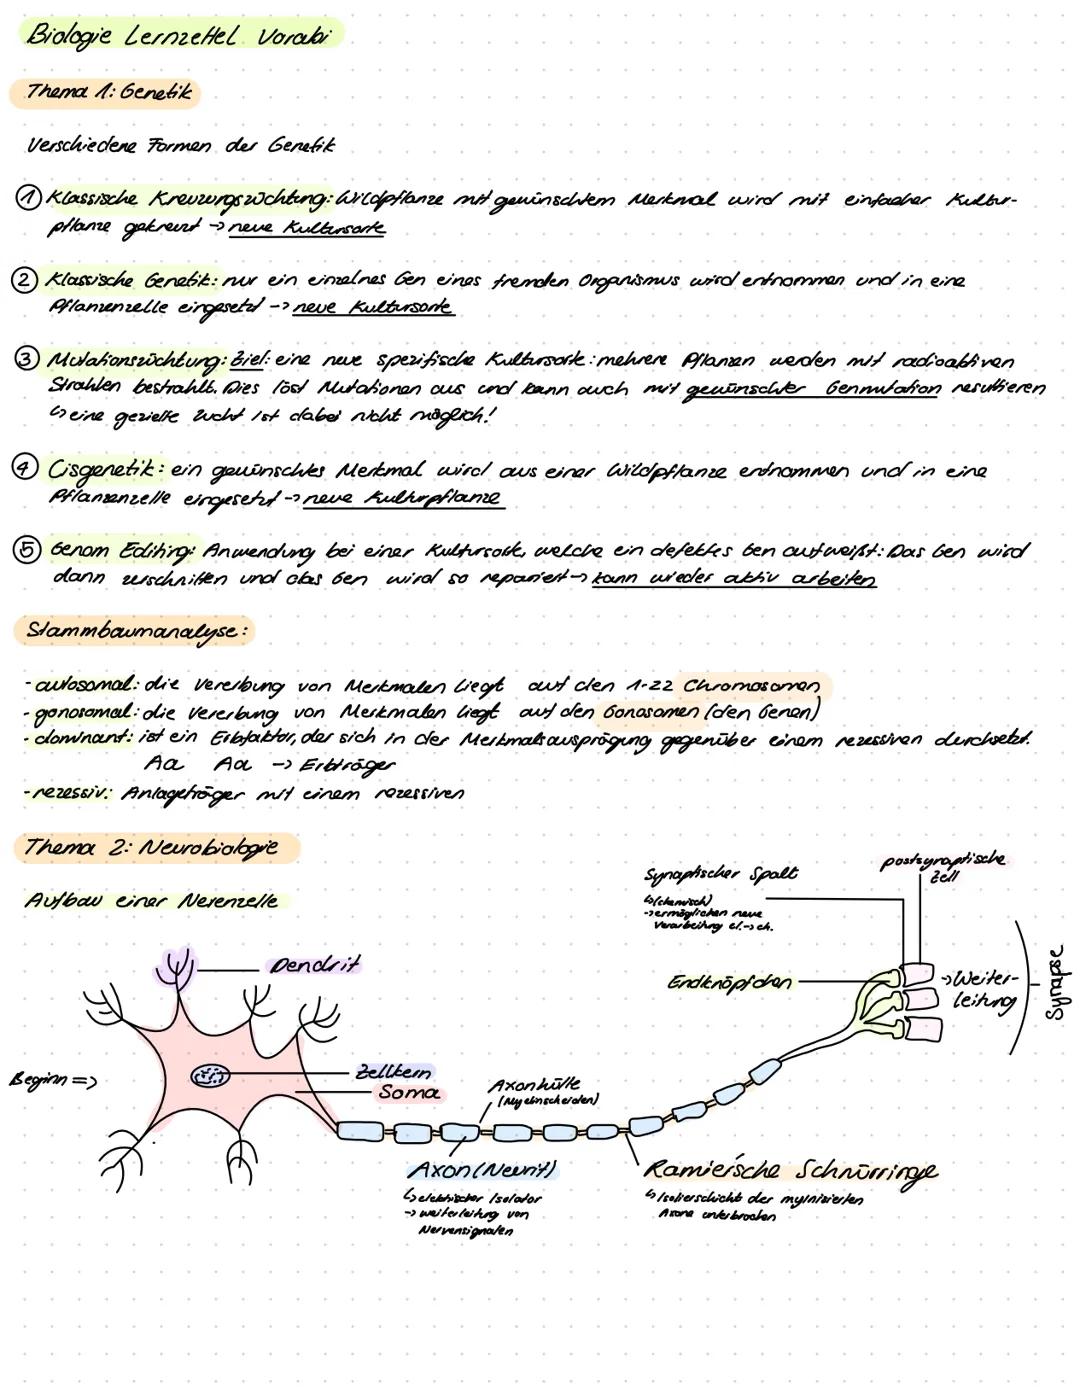 Biologie Lernzettel Vorabi
Thema 1: Genetik
Verschiedene Formen der Genetik
① Klassische Kreuzungszüchtung: Wildpflanze mit gewünschtem Merkmal wird mit einfacher Kultur-
pflanze gekreuzt -> neue Kultursorte
② Klassische Genetik: nur ein einzelnes Gen eines fremden Organismus wird entnommen und in eine
Pflanzenzelle eingesetzt -> neue Kultursorte
③ Mutationszüchtung: Ziel: eine neue spezifische Kultursorte: mehrere Pflanzen werden mit radioaktiven
Strahlen bestrahlt. Dies löst Mutationen aus und kann auch mit gewünschter Genmutation resultieren
↳ eine gezielte Zucht ist dabei nicht möglich!
④ Cisgenetik: ein gewünschtes Merkmal wird aus einer Wildpflanze entnommen und in eine
Pflanzenzelle eingesetzt -> neue Kulturpflanze
⑤ Genom Editing: Anwendung bei einer Kultursorte, welche ein defektes Gen aufweißt: Das Gen wird
dann zerschnitten und das Gen wird so repariert -> kann wieder aktiv arbeiten
Stammbaumanalyse:
- autosomal: die Vererbung von Merkmalen liegt auf den 1-22 Chromosomen
- gonosomal: die Vererbung von Merkmalen liegt auf den Gonosomen (den Genen)
- dominant: ist ein Erbfaktor, der sich in der Merkmalsausprägung gegenüber einem rezessiven durchsetzt.
Aa Aa -> Erbträger
- rezessiv: Anlageträger mit einem rezessiven
Thema 2: Neurobiologie
Aufbau einer Nerenzelle
Synaptischer Spalt
↳ (chemisch)
-> ermöglichen neue
Verarbeitung el. -> ch.
postsynaptische
Zell
Dendrit
Endknöpfchen
-> Weiter-
leitung
Synapse
Beginn =>
Zellkern
Soma
Axonhülle
(Myelinscheiden)
Axon (Neurit)
↳ elektrischer Isolator
-> weiterleitung von
Nervensignalen
Ranvier'sche Schnürringe
↳ Isolierschicht der mylnisierten
Axone unterbrochen